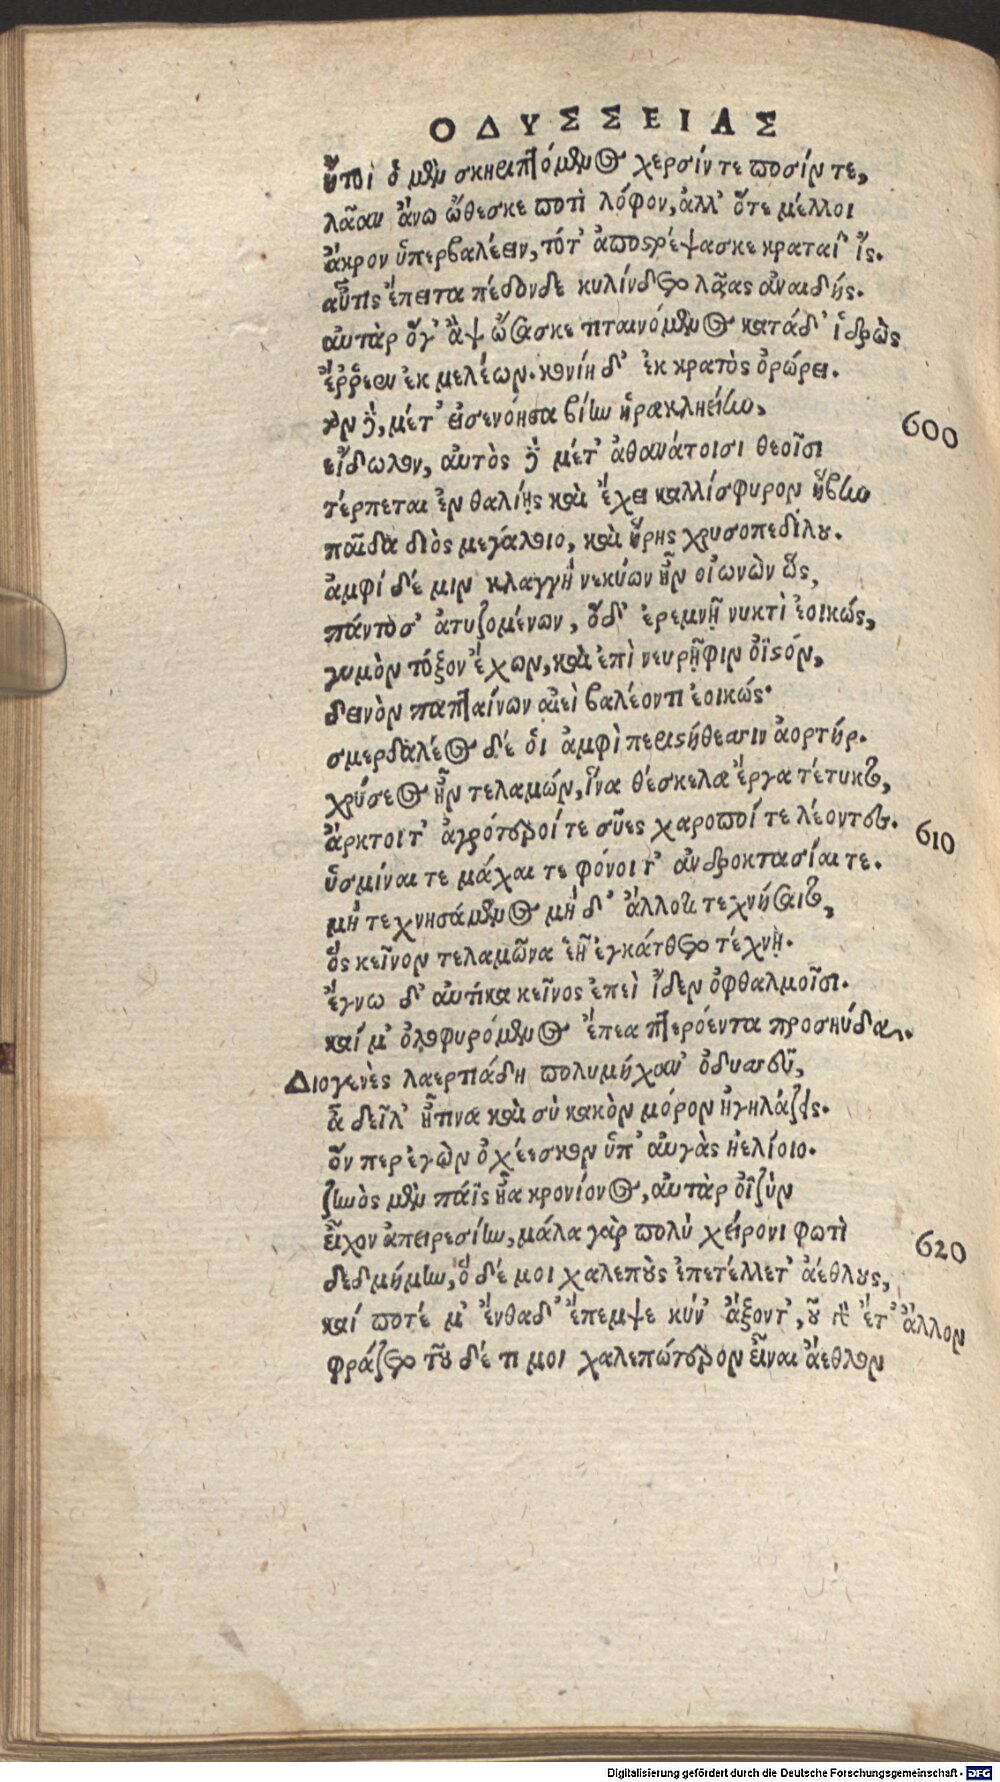 ΟΔΥΣΣΕΙΑΣ
ἤτοι ὁ μὲν σκηριπτόμενος χερσίν τε ποσίν τε,
λᾶαν ἄνω ὤθεσκε ποτὶ λόφον, ἀλλ' ὅτε μέλλοι
ἄκρον ὑπερβαλέειν, τότ' ἀποστρέψασκε κραταιῒ ἴς.
αὖτις ἔπειτα πέδονδε κυλίνδετο λᾶας ἀναιδής.
αὐτὰρ ὅγ' ἂψ ὤσασκε τιταινόμενος κατὰ δ' ἱδρὼς
ἔρῥεεν ἐκ μελέων. κονίη δ' ἐκ κρατὸς ὀρώρει.
τὸν δὲ, μέτ' εἰσενόησα βίην ἡρακληείην, 600
εἴδωλον, αὐτὸς δὲ μέτ' ἀθανάτοισι θεοῖσι
τέρπεται ἐν θαλίῃς καὶ ἔχει καλλίσφυρον ἥβην
παῖδα διὸς μεγάλοιο, καὶ ἥρης χρυσοπεδίλου.
ἀμφὶ δέ μιν κλαγγὴ νεκύων ἦν οἰωνῶν ὣς,
πάντοσ' ἀτυζομένων, ὁδ' ἐρεμνῇ νυκτὶ ἐοικώς,
γυμὸν τόξον ἔχων, καὶ ἐπὶ νευρῇφιν ὀϊστόν,
δεινὸν παπταίνων αἰεὶ βαλέοντι ἐοικώς·
σμερδαλέος δέ οἱ ἀμφὶ περιστήθεσσιν ἀορτήρ.
χρύσεος ἦν τελαμών, ἵνα θέσκελα ἔργα τέτυκτο,
ἄρκτοι τ' ἀγρότεροί τε σῦες χαροποί τε λέοντες. 610
ὑσμίναι τε μάχαι τε φόνοι τ' ἀνδροκτασίαι τε.
μὴ τεχνησάμενος μὴ δ' ἄλλό τι τεχνήσαιτο,
ὃς κεῖνον τελαμῶνα ἑῇ ἐγκάτθετο τέχνῃ.
ἔγνω δ' αὐτίκα κεῖνος ἐπεὶ ἴδεν ὀφθαλμοῖσι.
καί μ' ὀλοφυρόμενος ἔπεα πτερόεντα προσηύδα.
Διογενὲς λαερτιάδη πολυμήχαν' ὀδυσσεῦ,
ἆ δεῖλ' ἦ τινα καὶ σὺ κακὸν μόρον ἡγηλάζεις.
ὅν περ ἐγὼν ὀχέεσκον ὑπ' αὐγὰς ἠελίοιο.
ζηνὸς μὲν πάϊς ἦα κρονίονος, αὐτὰρ ὀϊζὺν
εἶχον ἀπειρεσίην, μάλα γὰρ πολὺ χείρονι φωτὶ 620
δεδμήμην, ὁ δέ μοι χαλεποὺς ἐπετέλλετ' ἀέθλους,
καί ποτέ μ' ἔνθαδ' ἔπεμψε κύν' ἄξοντ', οὐ γὰρ ἔτ' ἄλλον
φράζετο τοῦ δέ τί μοι χαλεπώτερον εἶναι ἄεθλον
Digitalisierung gefördert durch die Deutsche Forschungsgemeinschaft - DFG